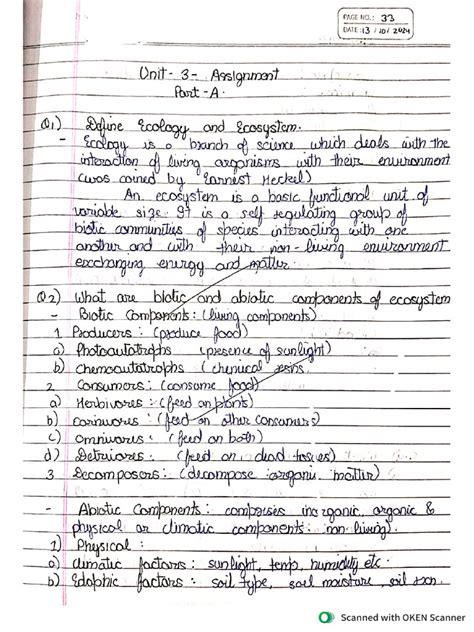 PAGE NO.: 33
DATE: 13/10/2024
Unit- 3- Assignment
Part-A.
Q1) Define Ecology and Ecosystem.
- Ecology is a branch of science which deals with the
interaction of living organisms with their environment
(was coined by Earnest Heckel)
An ecosystem is a basic functional unit of
variable size. It is a self regulating group of
biotic communities of species interacting with one
another and with their non-living environment
exchanging energy and matter.
Q2) What are biotic and abiotic components of ecosystem
- Biotic Components: (living components)
1. Producers: (produce food)
a) Photoautotrophs (presence of sunlight)
b) Chemoautotrophs (chemical
2. Consumers: (consume food)
a) Herbivores: (feed on plants)
b) carnivores: (feed on other consumers)
c) Omnivores: (feed on both)
d) Detriores: (feed on dead
3. Decomposers: (decompose organic matter)
- Abiotic Components: comprises inorganic, organic &
physical or climatic components: non-living).
1) Physical:
a) climatic factors: sunlight, temp, humidity etc.
b) Edaphic factors: soil type, soil moisture, soil
Scanned with OKEN Scanner